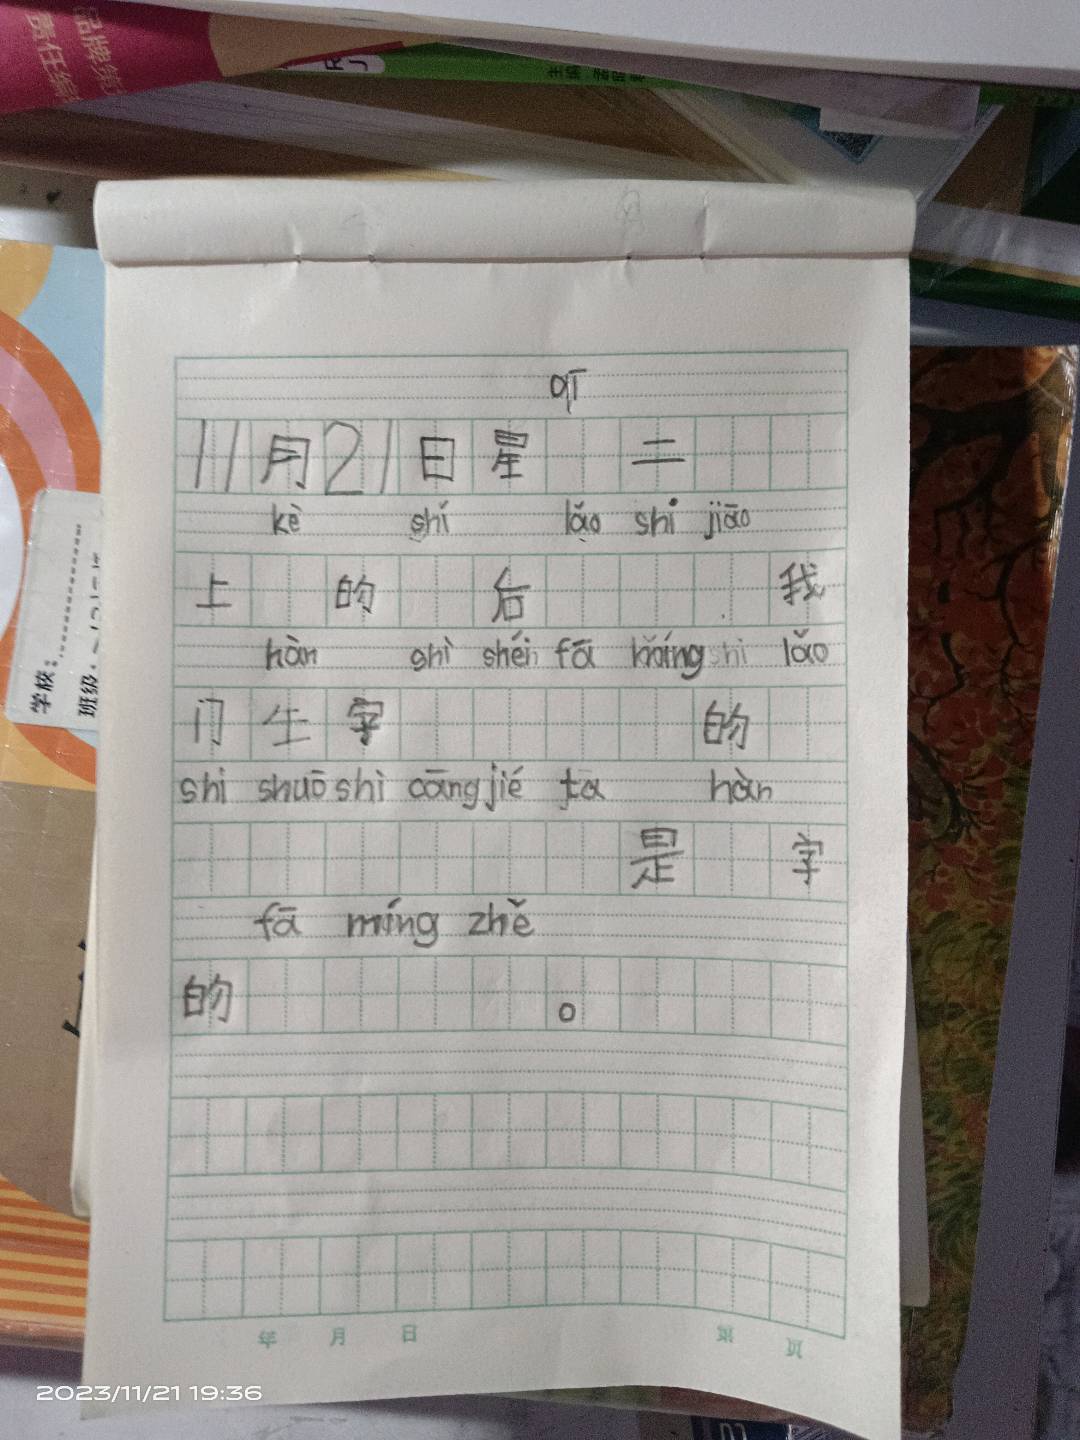 品牌
责任编
主编
听
11月21日星 二
kè shí lǎo shi jiāo
上 的 后 我
hàn shì shéi fā míng shi lǎo
门生字 的
shi shuō shì cāng jié ta hàn
是 字
fā míng zhě
的 。
年 月 日 第 页
学校:
班级:
2023/11/21 19:36